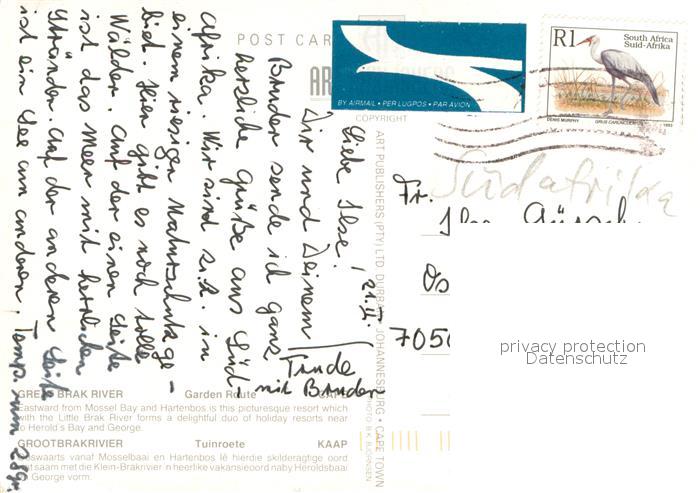 POST CAR
BY AIRMAIL • PER LUGPOS • PAR AVION
R1
South Africa
Suid-Afrika
DENIS MURPHY
1993
COPYRIGHT
Südafrika
Liebe Ilse!
21.
Dir und Deinem
Bruder sende ich ganz
herzliche Grüße aus Süd-
Afrika. Wir sind z.Z. in
einem riesigen Naturschutzge-
biet. Hier gibt es noch tolle
Wälder. Auf der einen Seite
ist das Meer mit herrlichen
Stränden. Auf der anderen Seite
ist ein See am anderen. Temp. um 28gr.
Trude
mit Bruder
Fr.
Ilse
705
privacy protection
Datenschutz
ART PUBLISHERS (PTY) LTD DURBAN • JOHANNESBURG • CAPE TOWN
PHOTO B.K. BJORNSEN
GREAT BRAK RIVER Garden Route CAPE
Eastward from Mossel Bay and Hartenbos is this picturesque resort which
with the Little Brak River forms a delightful duo of holiday resorts near
to Herold's Bay and George.
GROOTBRAKRIVIER Tuinroete KAAP
Ooswaarts vanaf Mosselbaai en Hartenbos lê hierdie skilderagtige oord
wat saam met die Klein-Brakrivier 'n heerlike vakansieoord naby Heroldsbaai
en George vorm.